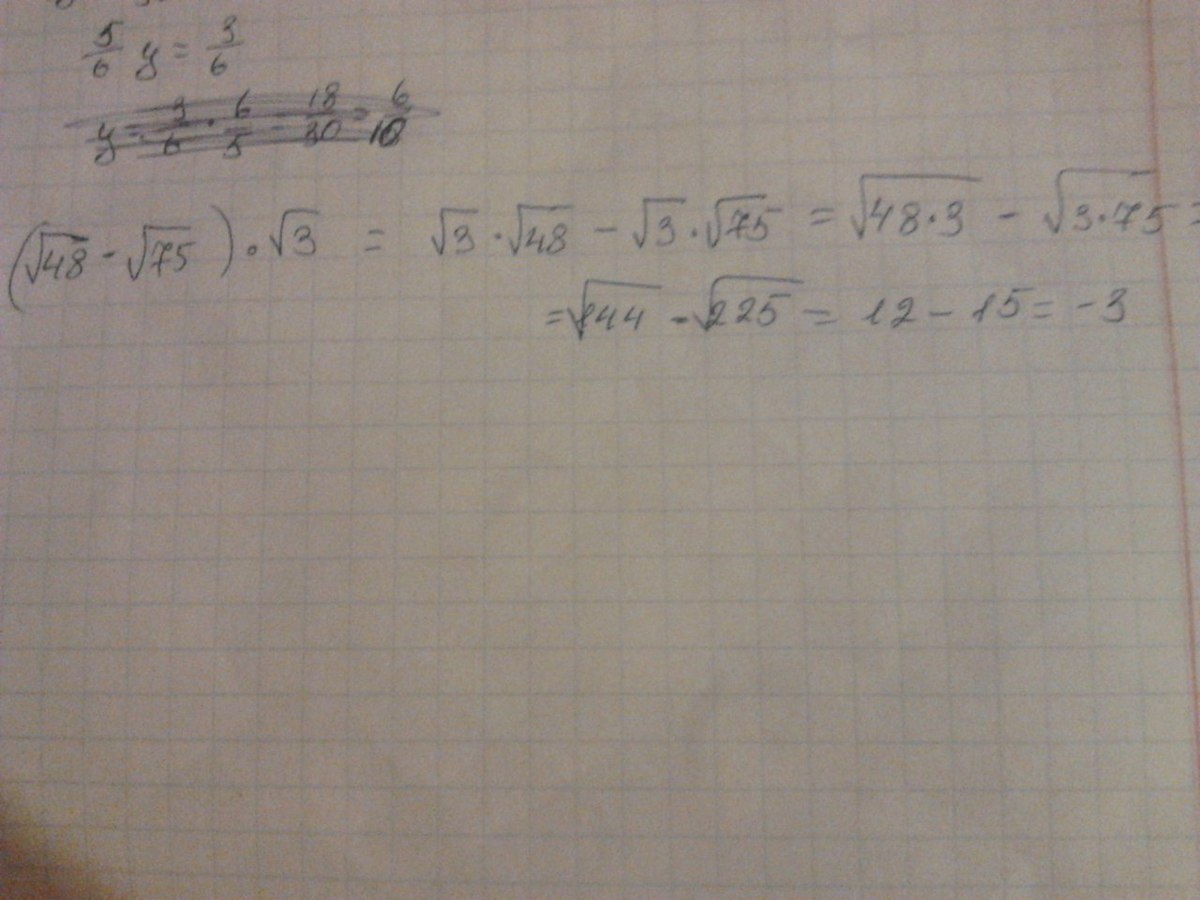 5/6 y = 3/6
y = 3/6 · 6/5 = 18/30 = 6/10
(√48 - √75) · √3 = √3 · √48 - √3 · √75 = √48·3 - √3·75 =
= √144 - √225 = 12 - 15 = -3